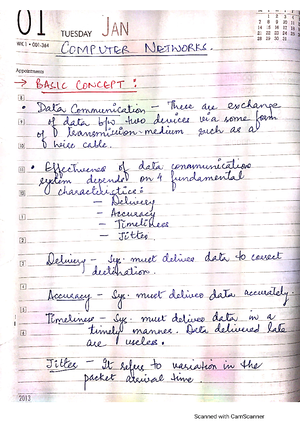 01 TUESDAY JAN
WK 1 • 001-364
COMPUTER NETWORKS.
Appointments
→ BASIC CONCEPT :
• Data Communication – There are exchange
of data b/w two devices via some form
of transmission-medium such as a
wire cable.
• Effectiveness of data communication
system depended on 4 fundamental
characteristics:
– Delivery
– Accuracy
– Timeliness
– Jitter.
Delivery – Sys. must deliver data to correct
destination.
Accuracy – Sys. must deliver data accurately.
Timeliness – Sys. must deliver data in a
timely manner. Data delivered late
are useless.
Jitter – It refers to variation in the
packet arrival time.
2013
Scanned with CamScanner